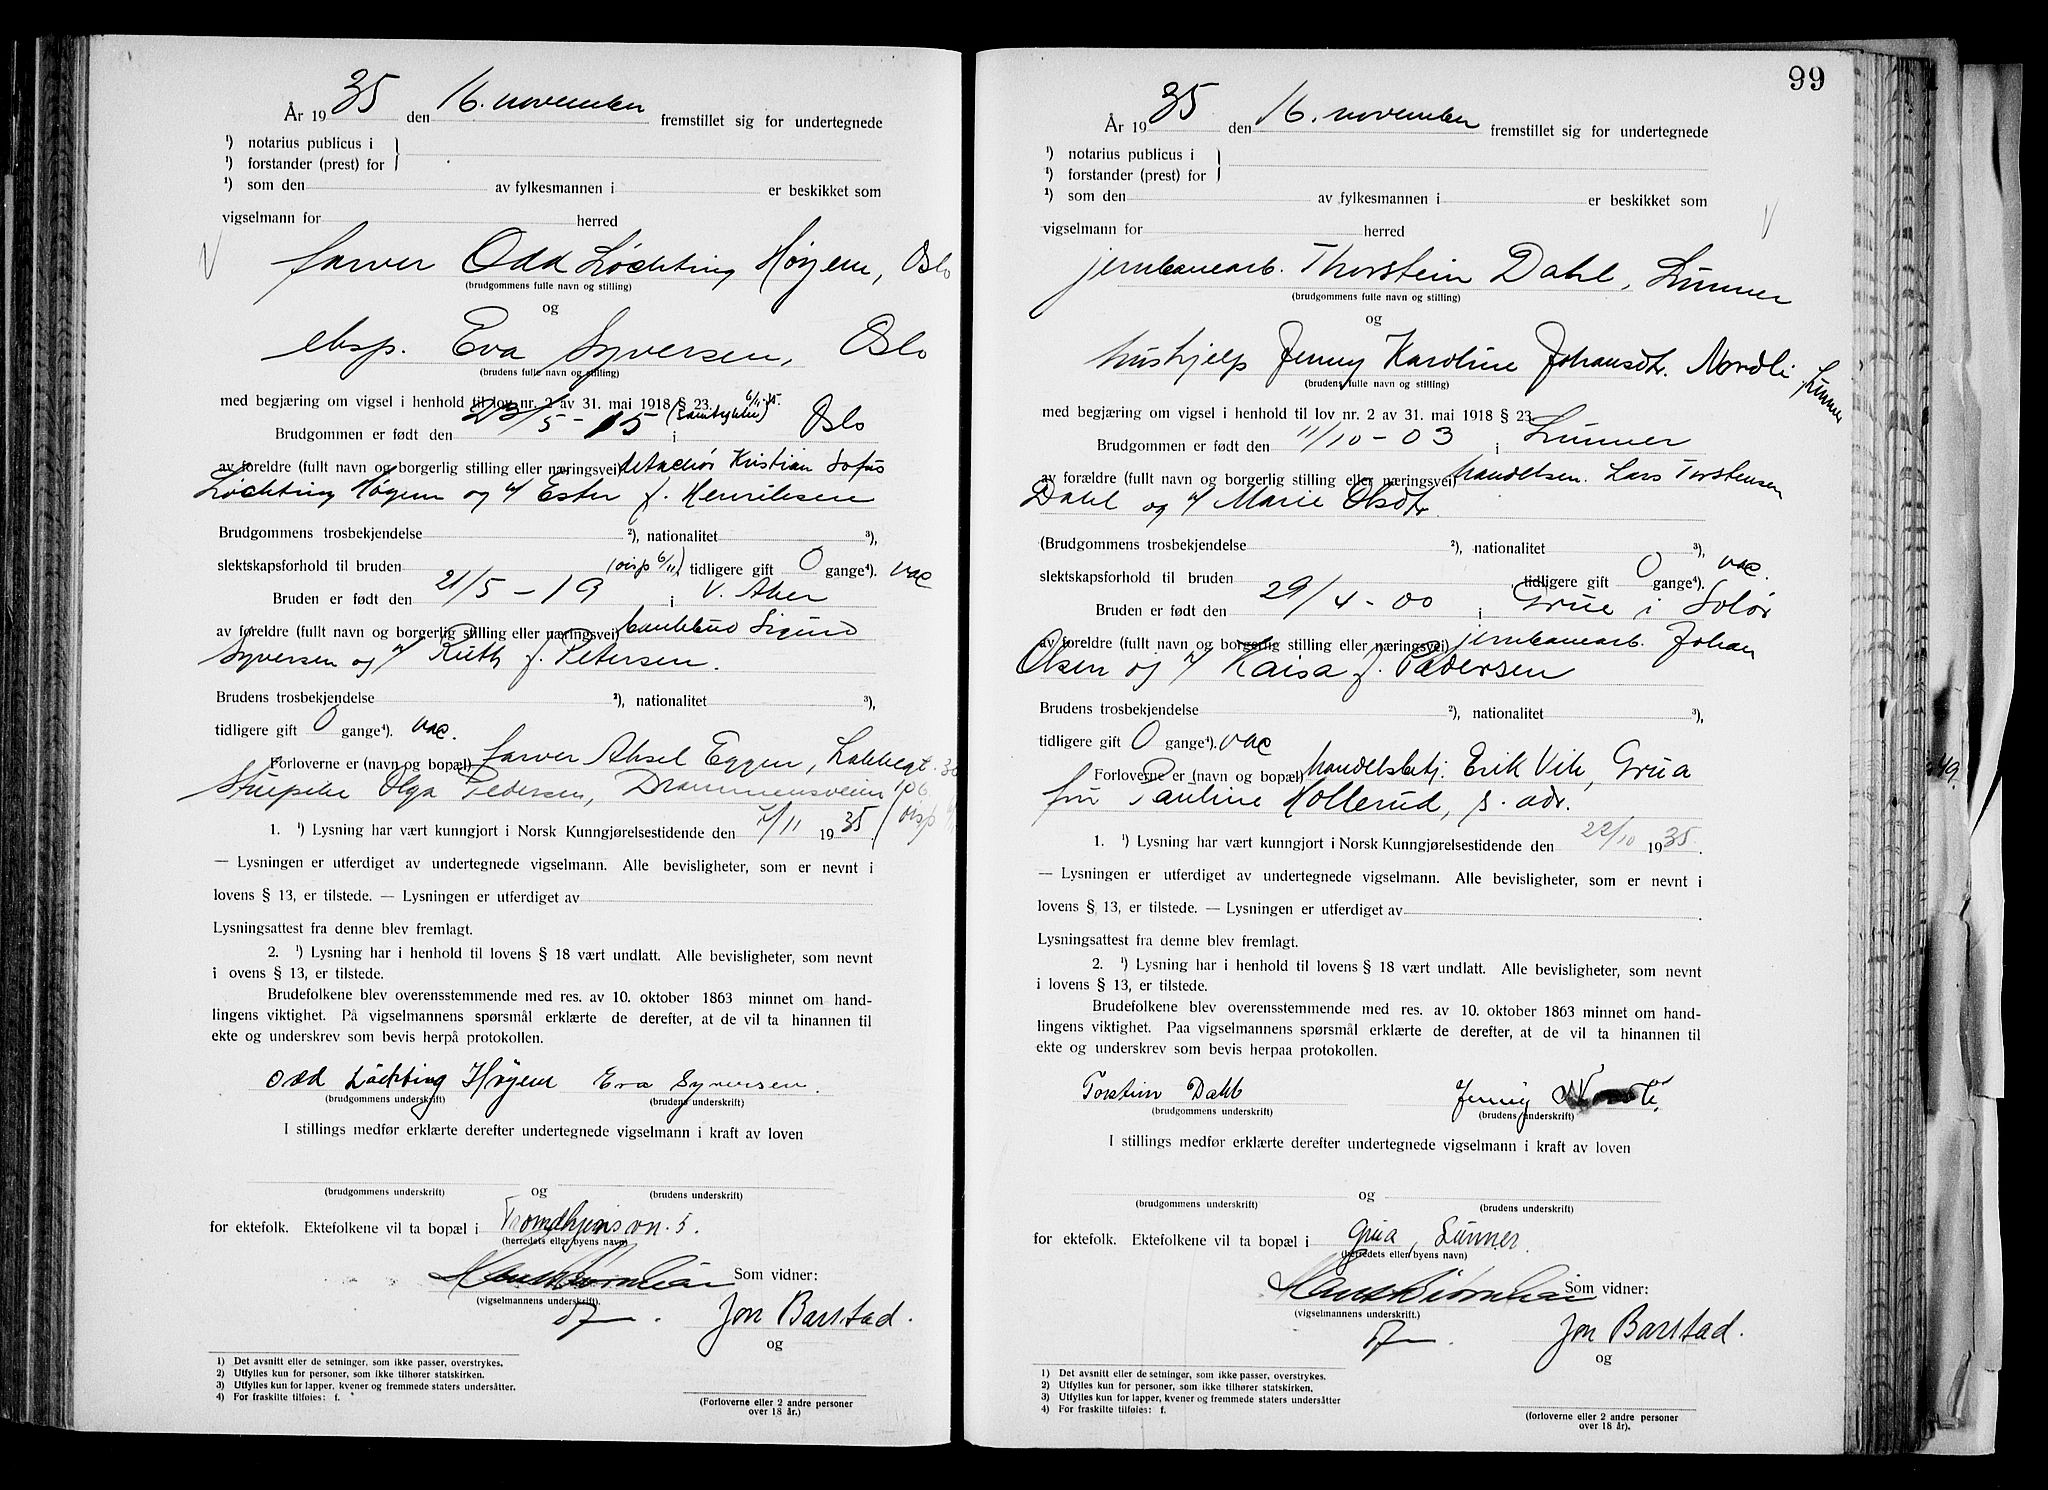 År 1935 den 16. november fremstillet sig for undertegnede
¹) notarius publicus i
¹) forstander (prest) for
¹) som den av fylkesmannen i er beskikket som
vigselmann for herred
farver Odd Löchting Höyem, Oslo
(brudgommens fulle navn og stilling)
og
eksp. Eva Syversen, Oslo
(brudens fulle navn og stilling)
med begjæring om vigsel i henhold til lov nr. 2 av 31. mai 1918 § 23. 6/11-35.
Brudgommen er født den 23/5-15 (samtykke) i Oslo
av foreldre (fullt navn og borgerlig stilling eller næringsvei) Kristian Sofus
Löchting Høyem og Ester f. Henriksen
Brudgommens trosbekjendelse ²), nationalitet ³),
slektskapsforhold til bruden (disp 6/11) tidligere gift 0 gange⁴). vac
Bruden er født den 21/5-19 i V. Aker
av foreldre (fullt navn og borgerlig stilling eller næringsvei) Sigurd
Syversen og Ruth f. Petersen.
Brudens trosbekjendelse ²), nationalitet ³),
tidligere gift 0 gange⁴). vac.
Forloverne er (navn og bopæl) farver Aksel Eggen, Lakkegt. 30
Stuepike Olga Pedersen, Drammensveien 106.
1. ¹) Lysning har vært kunngjort i Norsk Kunngjørelsestidende den 7/11 1935 (disp
— Lysningen er utferdiget av undertegnede vigselmann. Alle bevisligheter, som er nevnt i
lovens § 13, er tilstede. — Lysningen er utferdiget av
Lysningsattest fra denne blev fremlagt.
2. ¹) Lysning har i henhold til lovens § 18 vært undlatt. Alle bevisligheter, som nevnt
i ovens § 13, er tilstede.
Brudefolkene blev overensstemmende med res. av 10. oktober 1863 minnet om hand-
lingens viktighet. På vigselmannens spørsmål erklærte de derefter, at de vil ta hinannen til
ekte og underskrev som bevis herpå protokollen.
Odd Löchting Höyem Eva Syversen.
(brudgommens underskrift) (brudens underskrift)
I stillings medfør erklærte derefter undertegnede vigselmann i kraft av loven
og
(brudgommens underskrift) (brudens underskrift)
for ektefolk. Ektefolkene vil ta bopæl i Trondhjemsvn. 5.
(herredets eller byens navn)
Som vidner:
(vigselmannens underskrift).
Jon Barstad.
og
1) Det avsnitt eller de setninger, som ikke passer, overstrykes.
2) Utfylles kun for personer, som ikke tilhører statskirken.
3) Utfylles kun for lapper, kvener og fremmede staters undersåtter.
4) For fraskilte tilføies: f.
(Forloverne eller 2 andre personer
over 18 år.)
99
År 1935 den 16. november fremstillet sig for undertegnede
¹) notarius publicus i
¹) forstander (prest) for
¹) som den av fylkesmannen i er beskikket som
vigselmann for herred
jernbanearb. Thorstein Dahl, Lunner
(brudgommens fulle navn og stilling)
og
hushjelp Jenny Karoline Johansdtr. Nordli, Lunner
(brudens fulle navn og stilling)
med begjæring om vigsel i henhold til lov nr. 2 av 31. mai 1918 § 23
Brudgommen er født den 11/10-03 i Lunner
av forældre (fullt navn og borgerlig stilling eller næringsvei) handelsm. Lars Torstensen
Dahl og Marie Olsdtr.
(Brudgommens trosbekjendelse ²), nationalitet ³),
slektskapsforhold til bruden , tidligere gift 0 gange⁴). vac.
Bruden er født den 29/4-00 i Grue i Solör
av foreldre (fullt navn og borgerlig stilling eller næringsvei) jernbanearb. Johan
Olsen og Kaisa f. Pedersen
Brudens trosbekjendelse ²), nationalitet ³),
tidligere gift 0 gange⁴). vac
Forloverne er (navn og bopæl) handelsbetj. Erik Vik, Grua
fru Pauline Hollerud, s. adr.
1. ¹) Lysning har vært kunngjort i Norsk Kunngjørelsestidende den 22/10 1935.
— Lysningen er utferdiget av undertegnede vigselmann. Alle bevisligheter, som er nevnt i
lovens § 13, er tilstede. — Lysningen er utferdiget av
Lysningsattest fra denne blev fremlagt.
2. ¹) Lysning har i henhold til lovens § 18 vært undlatt. Alle bevisligheter, som nevnt
i lovens § 13, er tilstede.
Brudefolkene blev overensstemmende med res. av 10. oktober 1863 minnet om hand-
lingens viktighet. Paa vigselmannens spørsmål erklærte de derefter, at de vil ta hinannen til
ekte og underskrev som bevis herpaa protokollen.
Torstein Dahl Jenny Nordli
(brudgommens underskrift) (brudens underskrift)
I stillings medfør erklærte derefter undertegnede vigselmann i kraft av loven
og
(brudgommens underskrift) (brudens underskrift)
for ektefolk. Ektefolkene vil ta bopæl i Grua, Lunner.
(herredets eller byens navn)
Som vidner:
(vigselmannens underskrift.)
Jon Barstad.
og
1) Det avsnitt eller de setninger, som ikke passer, overstrykes.
2) Utfylles kun for personer, som ikke tilhører statskirken.
3) Utfylles kun for lapper, kvener og fremmede staters undersåtter
4) For fraskilte tilføies: f.
(forloverne eller 2 andre personer
over 18 år).